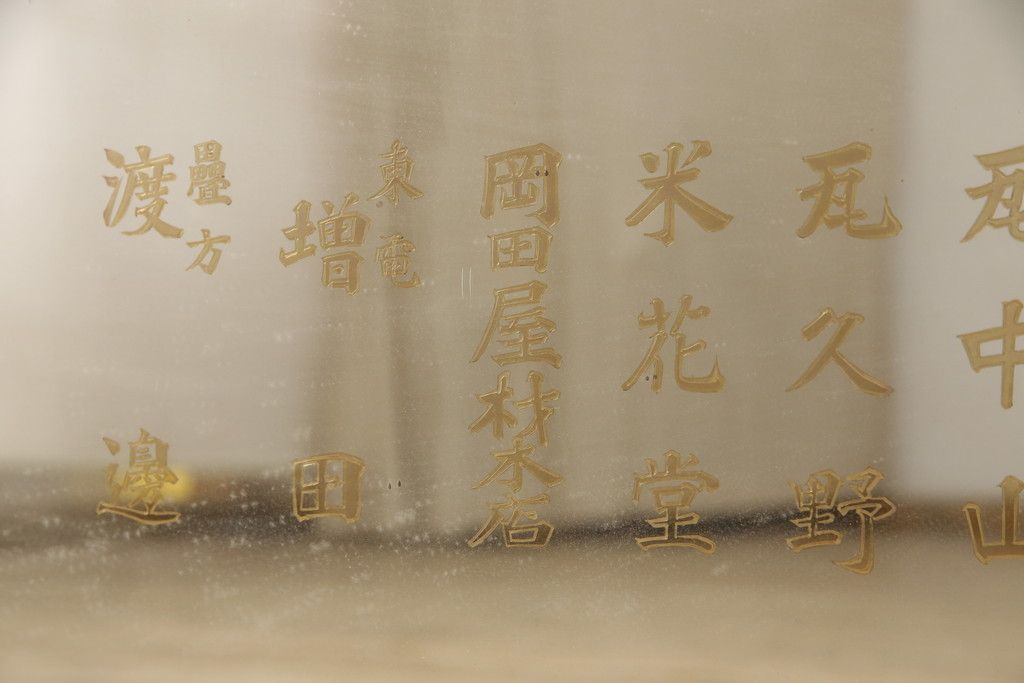 瓦中山
瓦久野
米花堂
岡田屋材木店
東電
増田
疊方
渡邊